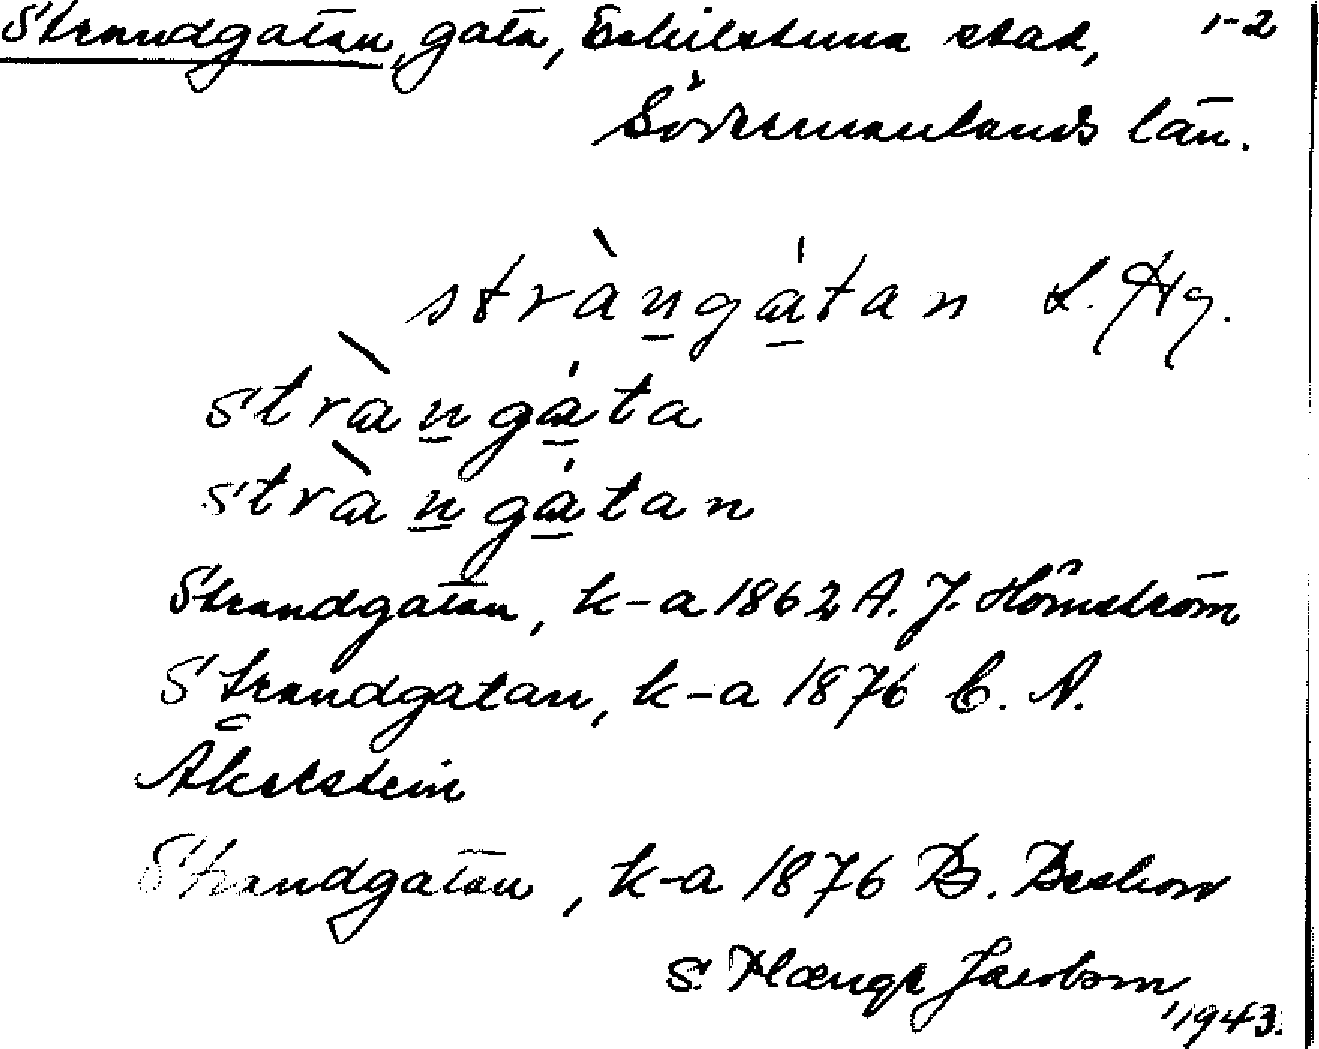 Strandgatan, gata, Eskilstuna stad, 1-2
Södermanlands län.
stràngátan L. Hg.
stràngáta
stràngátan
Strandgatan, k-a 1862 A. J. Hörnström
Strandgatan, k-a 1876 C. A.
Åkerstein
Strandgatan, k-a 1876 B. Beskow
S. Hængt Jacobson
1943.